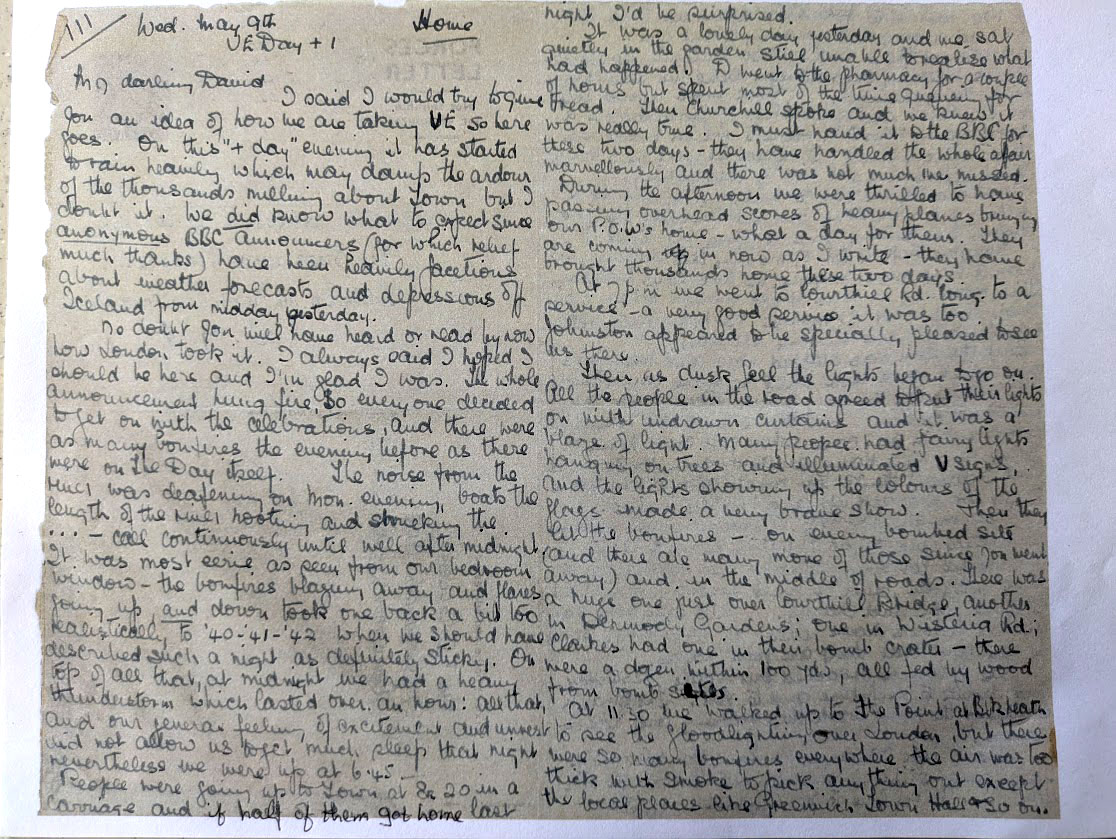 111
Wed. May 9th
VE Day + 1
Home
My darling David
I said I would try to give
you an idea of how we are taking VE so here
goes. On this "+ day" evening it has started
to rain heavily which may damp the ardour
of the thousands milling about Town but I
doubt it. We did know what to expect since
anonymous BBC announcers (for which relief
much thanks) have been heavily facetious
about weather forecasts and depressions off
Iceland from midday yesterday.
No doubt you will have heard or read by now
how London took it. I always said I hoped I
should be here and I'm glad I was. The whole
announcement hung fire, so everyone decided
to get on with the celebrations, and there were
as many bonfires the evening before as there
were on The Day itself. The noise from the
river was deafening on Mon. evening, boats the
length of the river hooting and shrieking the
...- call continuously until well after midnight.
It was most eerie as seen from our bedroom
window - the bonfires blazing away and flares
going up and down took one back a bit too
realistically to '40-'41-'42 when we should have
described such a night as definitely sticky. On
top of all that, at midnight we had a heavy
thunderstorm which lasted over an hour: all that,
and our general feeling of excitement and unrest
did not allow us to get much sleep that night
nevertheless we were up at 6.45 -
People were going up to Town at 8 & 20 in a
carriage and if half of them got home last
night I'd be surprised.
It was a lovely day yesterday and we sat
quietly in the garden still unable to realise what
had happened. D went to the pharmacy for a couple
of hours but spent most of the time queueing for
bread. Then Churchill spoke and we knew it
was really true. I must hand it to the BBC for
these two days - they have handled the whole affair
marvellously and there was not much we missed.
During the afternoon we were thrilled to have
passing overhead scores of heavy planes bringing
our P.O.W's home - what a day for them. They
are coming in now as I write - they have
brought thousands home these two days.
At 7 p.m we went to Courthill Rd. Cong. to a
service - a very good service it was too.
Johnston appeared to be specially pleased to see
us there.
Then as dusk fell the lights began to go on.
All the people in the road agreed to put their lights
on with undrawn curtains and it was a
blaze of light. Many people had fairy lights
hanging on trees and illuminated V signs,
and the lights showing up the colours of the
flags made a very brave show. Then they
lit the bonfires - on every bombed site
(and there are many more of those since you went
away) and in the middle of roads. There was
a huge one just over Courthill Bridge, another
in Dermody Gardens; one in Wisteria Rd.;
Clarkes had one in their bomb crater - there
were a dozen within 100 yds, all fed by wood
from bomb sites.
At 11.30 we walked up to The Point at Blkheath
to see the floodlighting over London, but there
were so many bonfires everywhere the air was too
thick with smoke to pick anything out except
the local places like Greenwich Town Hall & so on.